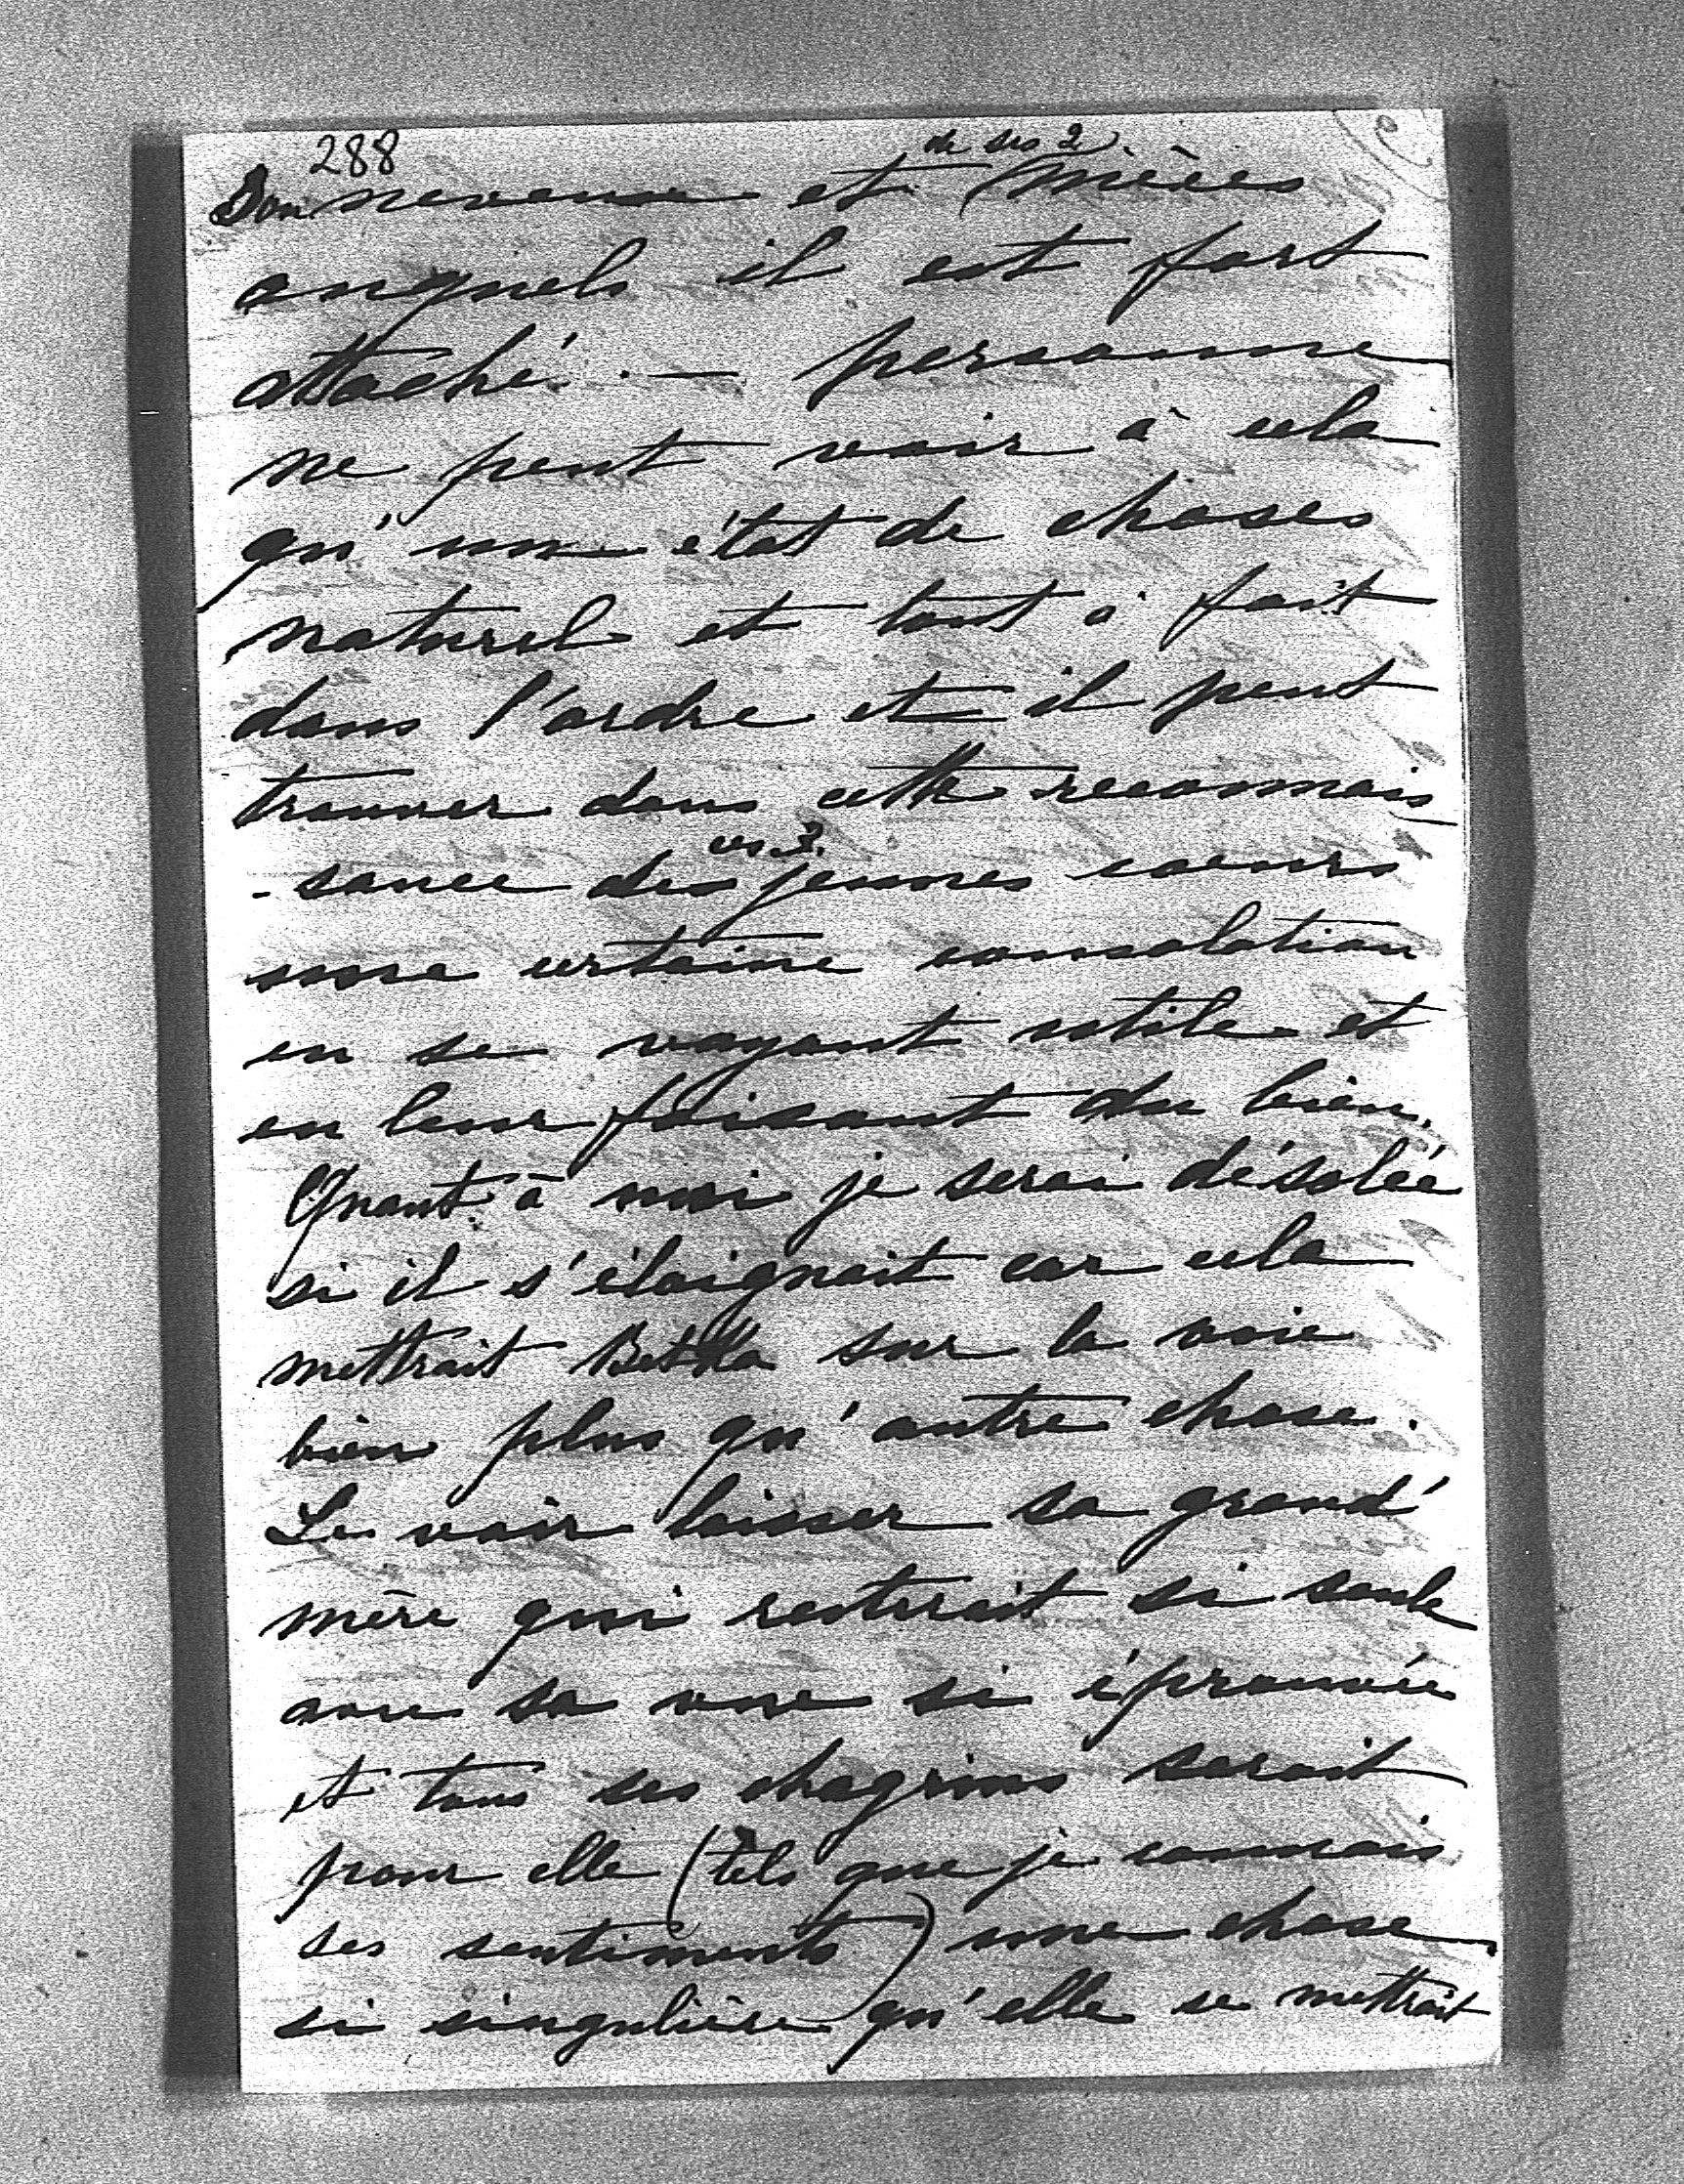 288
de ses 2
Son neveu et nièces
auxquels il est fort
attaché. — personne
ne peut voir à cela
qu'un état de choses
naturel et tout à fait
dans l'ordre et il peut
trouver dans cette reconnais
- sance des ces 3 jeunes coeurs
une certaine consolation
en se voyant utile et
en leur faisant du bien.
Quant à moi je serai désolée
si il s'éloignait car cela
mettrait Betka sur la voie
bien plus qu'autre chose.
Le voir laisser sa grand'
mère qui resterait si seule
avec sa vue si éprouvée
et tous ses chagrins serait
pour elle (tels que je connais
ses sentiments) une chose
si singulière qu'elle se mettrait